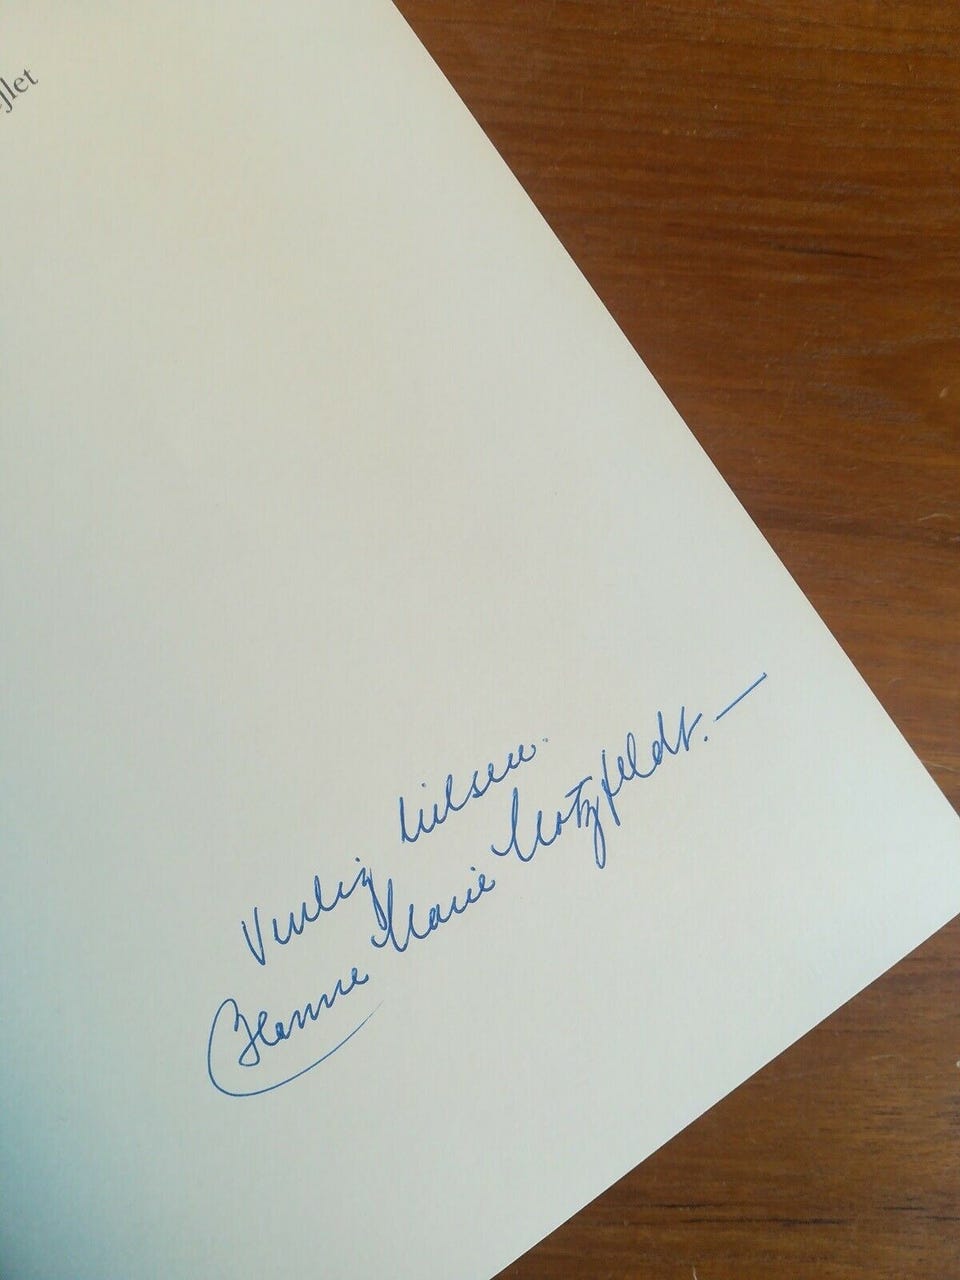 jlet
Venlig hilsen.
Hanne Marie Motzfeldt. —